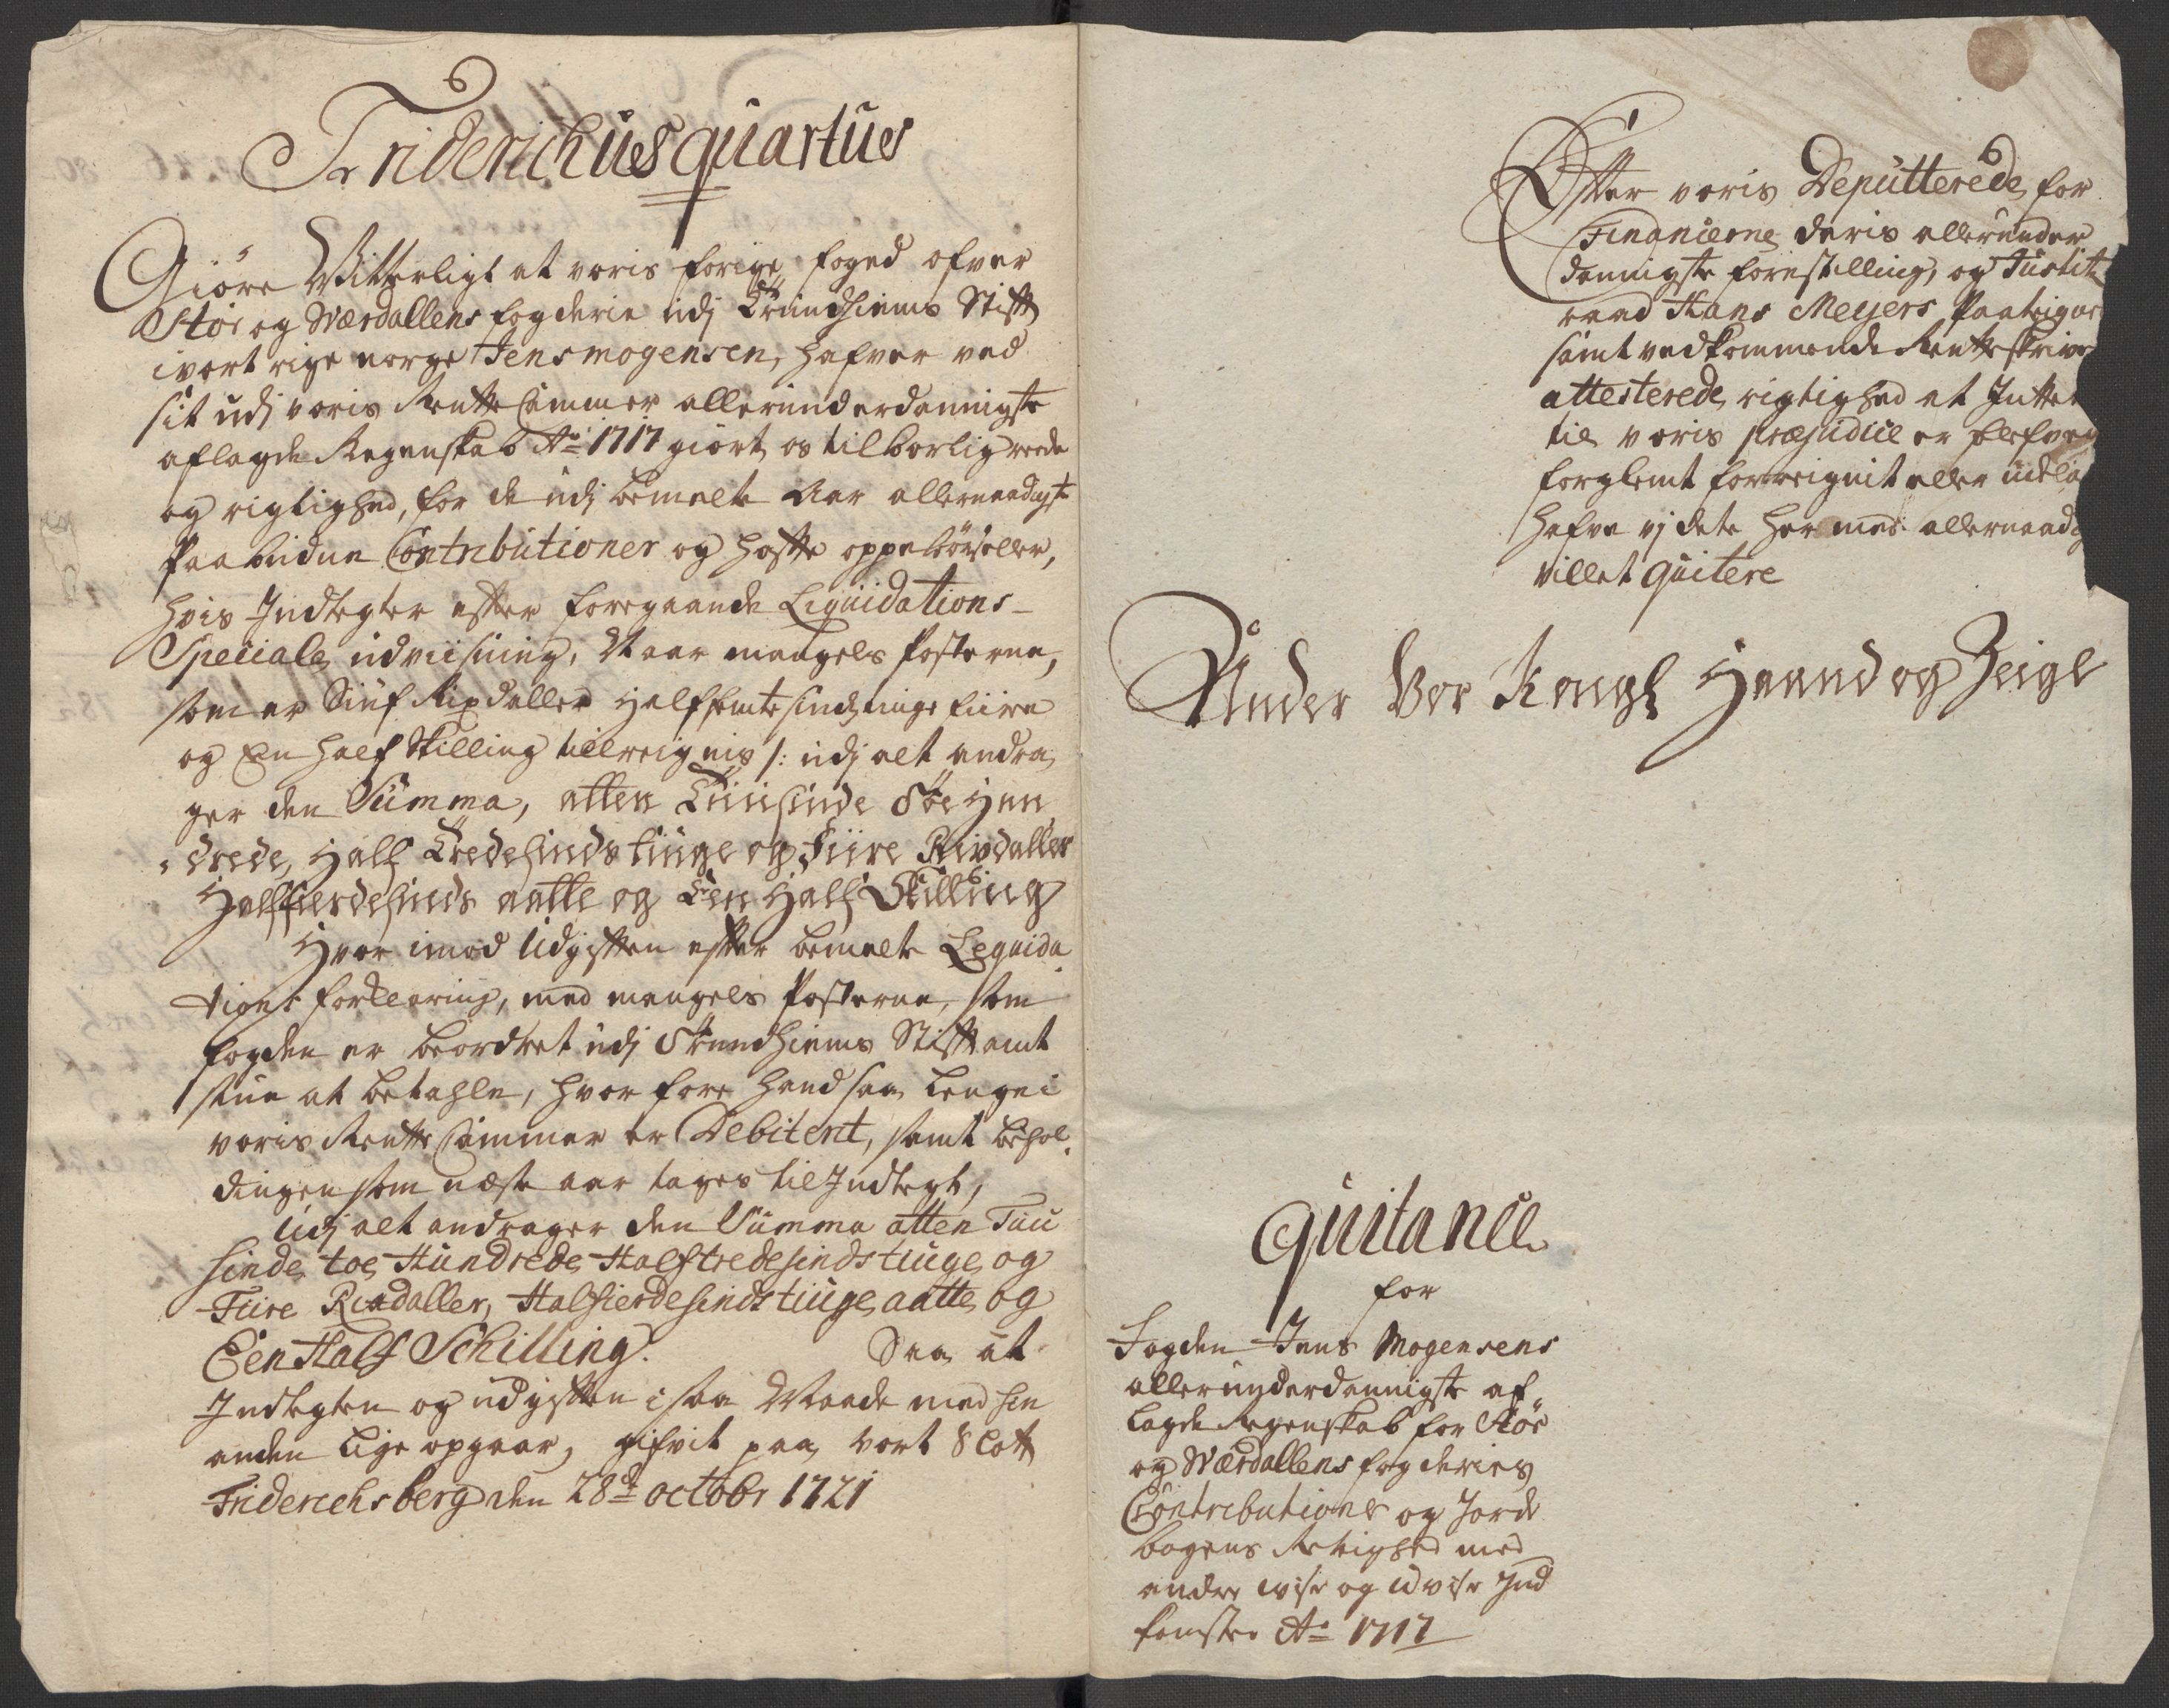 Friderichus quartus
Giöre Vitterligt at voris forige foged ofver
Stör og Værdallens fogderie udj Trundhiems Stift
ivort rige norge Jens mogensen, hafver ved
sit udj voris Rentte Cammer allerunderdannigste
aflagde Regenskab Ao 1717 giort os tilborlig reede
og rigtighed, for de udj bemelte Aar allernaadigste
Paabudne Contributioner og hafte oppebörseller,
hvis Indtegter efter foregaaende Liquidations
Speciale udviisning, Naar mangels Posterne,
som er Siuf Rixdaller Halfsemtesindztiuge fiire
og Een half Skilling tillreignis /: udj alt andra,
ger den Summa, atten Tuusinde Toe Hun,
drede, Half Tredesinds tiuge og Fiire Rixdaller
Halffierdesinds aatte og Een Half Skilling
Hvor imod Udgiften efter bemelte Leqvida
tions forklaring, med mangels Posterne, som
fogden er beordret udj Trundhiems Stiftamt
stue at betahle, hvor fore hand saa lenge i
voris Rentte Cammer er Debitert, samt behol,
dingen som næste aar tages til Indtegt,
Udj alt andrager den Summa atten Tuu
sinde, toe Hundrede Halftredesindstiuge og
Fiire Rixdaller, Halfierdesindstiuge aatte og
Een Half Schilling. Saa at
Indtegten og udgiften i saa Maade med hin
anden lige opgaar, gifvit paa vort Slott
Friderichsberg den 28de octobr 1721
Efter voris Deputterede for
Financierne deris allerunder
dannigste forestilling, og Justitz
raad Hans Meyers Paateigne
samt vedkommende Rentteskriver
attesterede rigtighed at Intet
til voris præjudice er blefven
forglemt forreignit eller udela
hafve vj dete her med allernaadig
villet quitere
Under Vor Kongl Haand og Zeigl
Quitance
for
Fogden Jens Mogensens
allerunderdannigste af,
lagde Regenskab for Stör
og Værdallens fogderies
Contributioner og Jorde
bogens Rettighed med
andre visse og uvisse Ind
komster Ao 1717